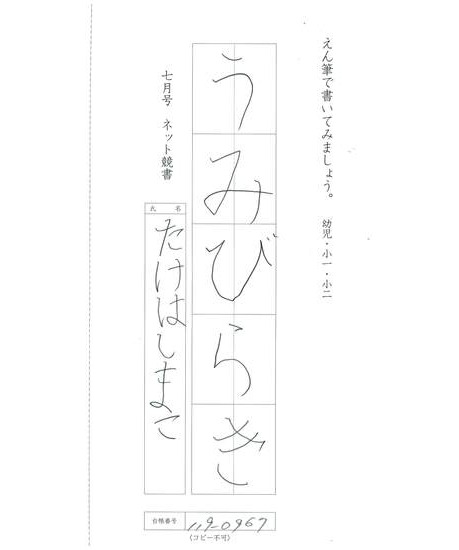 えん筆で書いてみましょう。 幼児・小一・小二
うみびらき
七月号 ネット競書
氏 名
たけはしまこ
台帳番号 119-0967
(コピー不可)